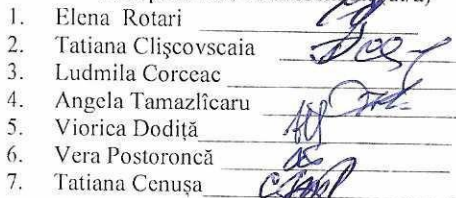 1. Elena Rotari
2. Tatiana Clişcovscaia
3. Ludmila Corceac
4. Angela Tamazlîcaru
5. Viorica Dodiţă
6. Vera Postoroncă
7. Tatiana Cenuşa